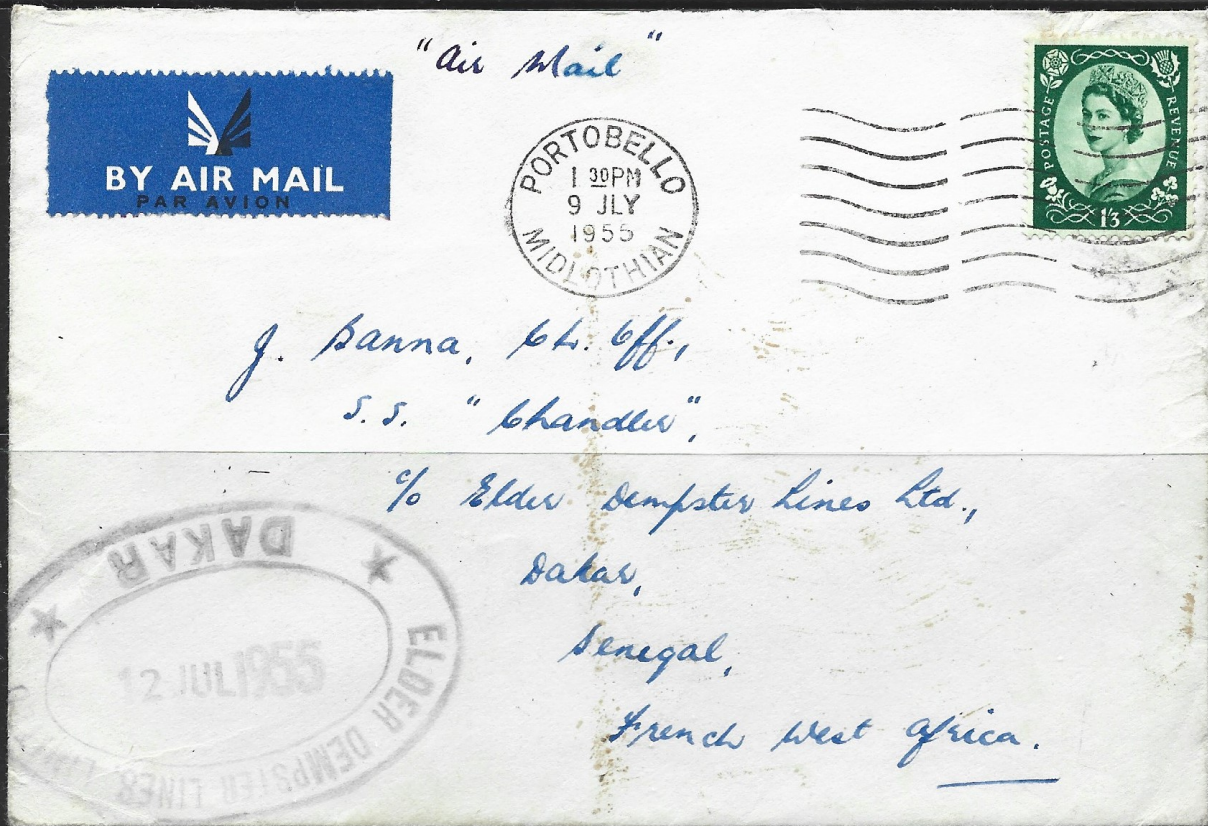 "Air Mail"
BY AIR MAIL
PAR AVION
PORTOBELLO
1 30PM
9 JLY
1955
MIDLOTHIAN
POSTAGE REVENUE
1/3
J. Banna, Ch. Off.,
S.S. "Chandler",
c/o Elder Dempster Lines Ltd.,
Dakar,
Senegal,
French West Africa.
DAKAR
12 JUL 1955
ELDER DEMPSTER LINES